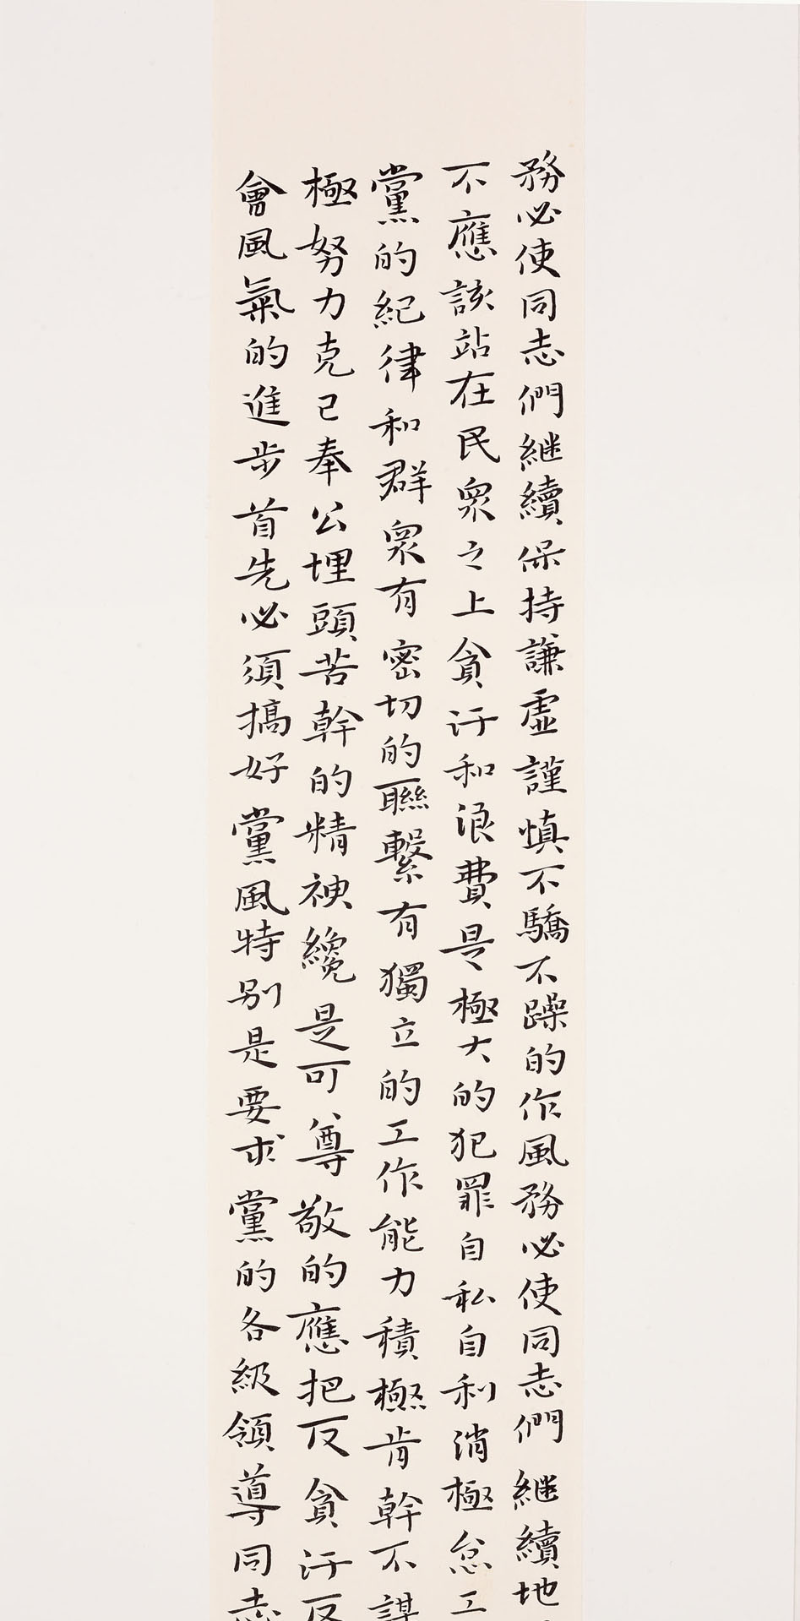 務必使同志們継續保持謙虛謹慎不驕不躁的作風務必使同志們継續地
不應該站在民眾之上貪汙和浪費是極大的犯罪自私自利消極怠工
黨的紀律和群眾有密切的聯繫有獨立的工作能力積極肯幹不謀
極努力克己奉公埋頭苦幹的精神纔是可尊敬的應把反貪汙反
會風氣的進步首先必須搞好黨風特別是要求黨的各級領導同志